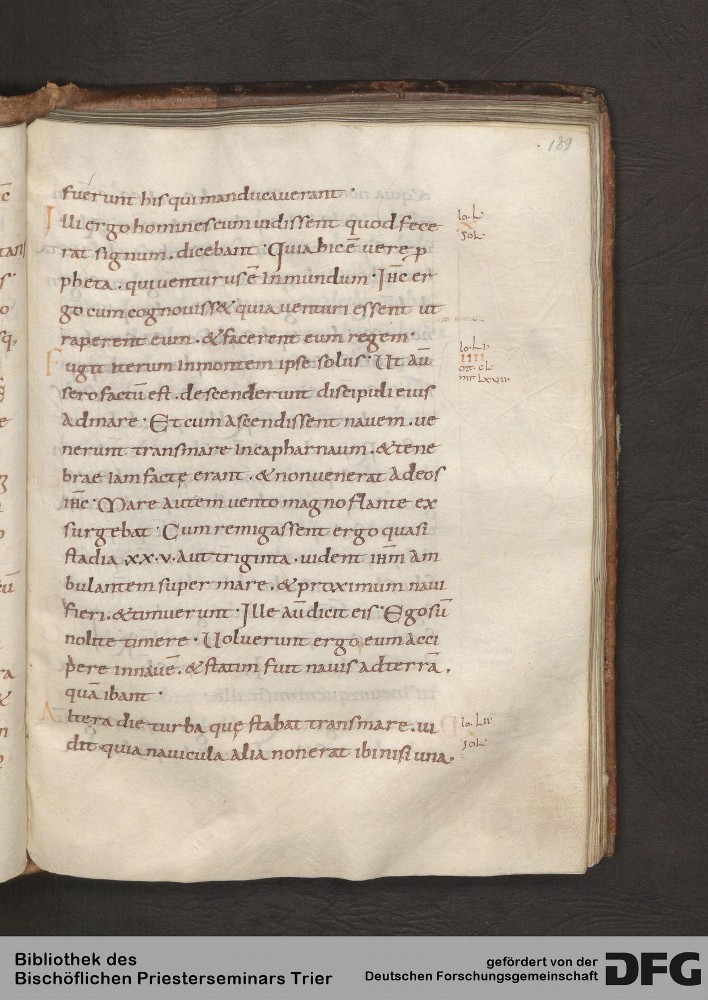 189
fuerunt his qui manducauerant ·
Illi ergo homines cum uidissent quod fece
rat signum . dicebant · Quia hic ē uere p
pheta . qui uenturus ē In mundum · Ihc̄ er
go cum cognouiss& quia uenturi essent ut
raperent eum . & facerent eum regem ·
Fugit Iterum In montem ipse solus · Ut aū
sero factū est . descenderunt discipuli eius
Ad mare · Et cum Ascendissent nauem . ue
nerunt trans mare In capharnaum . & tene
brae Iam factę erant . & non uenerat Ad eos
ihc̄ · Mare Autem uento magno flante ex
surgebat · Cum remigassent ergo quasi
stadia xx·v· Aut triginta · uident ihm̄ Am
bulantem super mare . & proximum naui
fieri . & timuerunt · Ille aū dicit eis · Ego sū
nolite timere · Uoluerunt ergo eum Acci
pere in nauē . & statim fuit nauis ad terrā .
quā ibant ·
Altera die turba quę stabat trans mare . ui
dit quia nauicula alia non erat ibi nisi una .
Io. L·
SoL·
Io. L I·
IIII
mt. CL
mr LXVII·
Io. L II·
SoL·
Bibliothek des
Bischöflichen Priesterseminars Trier
gefördert von der
Deutschen Forschungsgemeinschaft
DFG